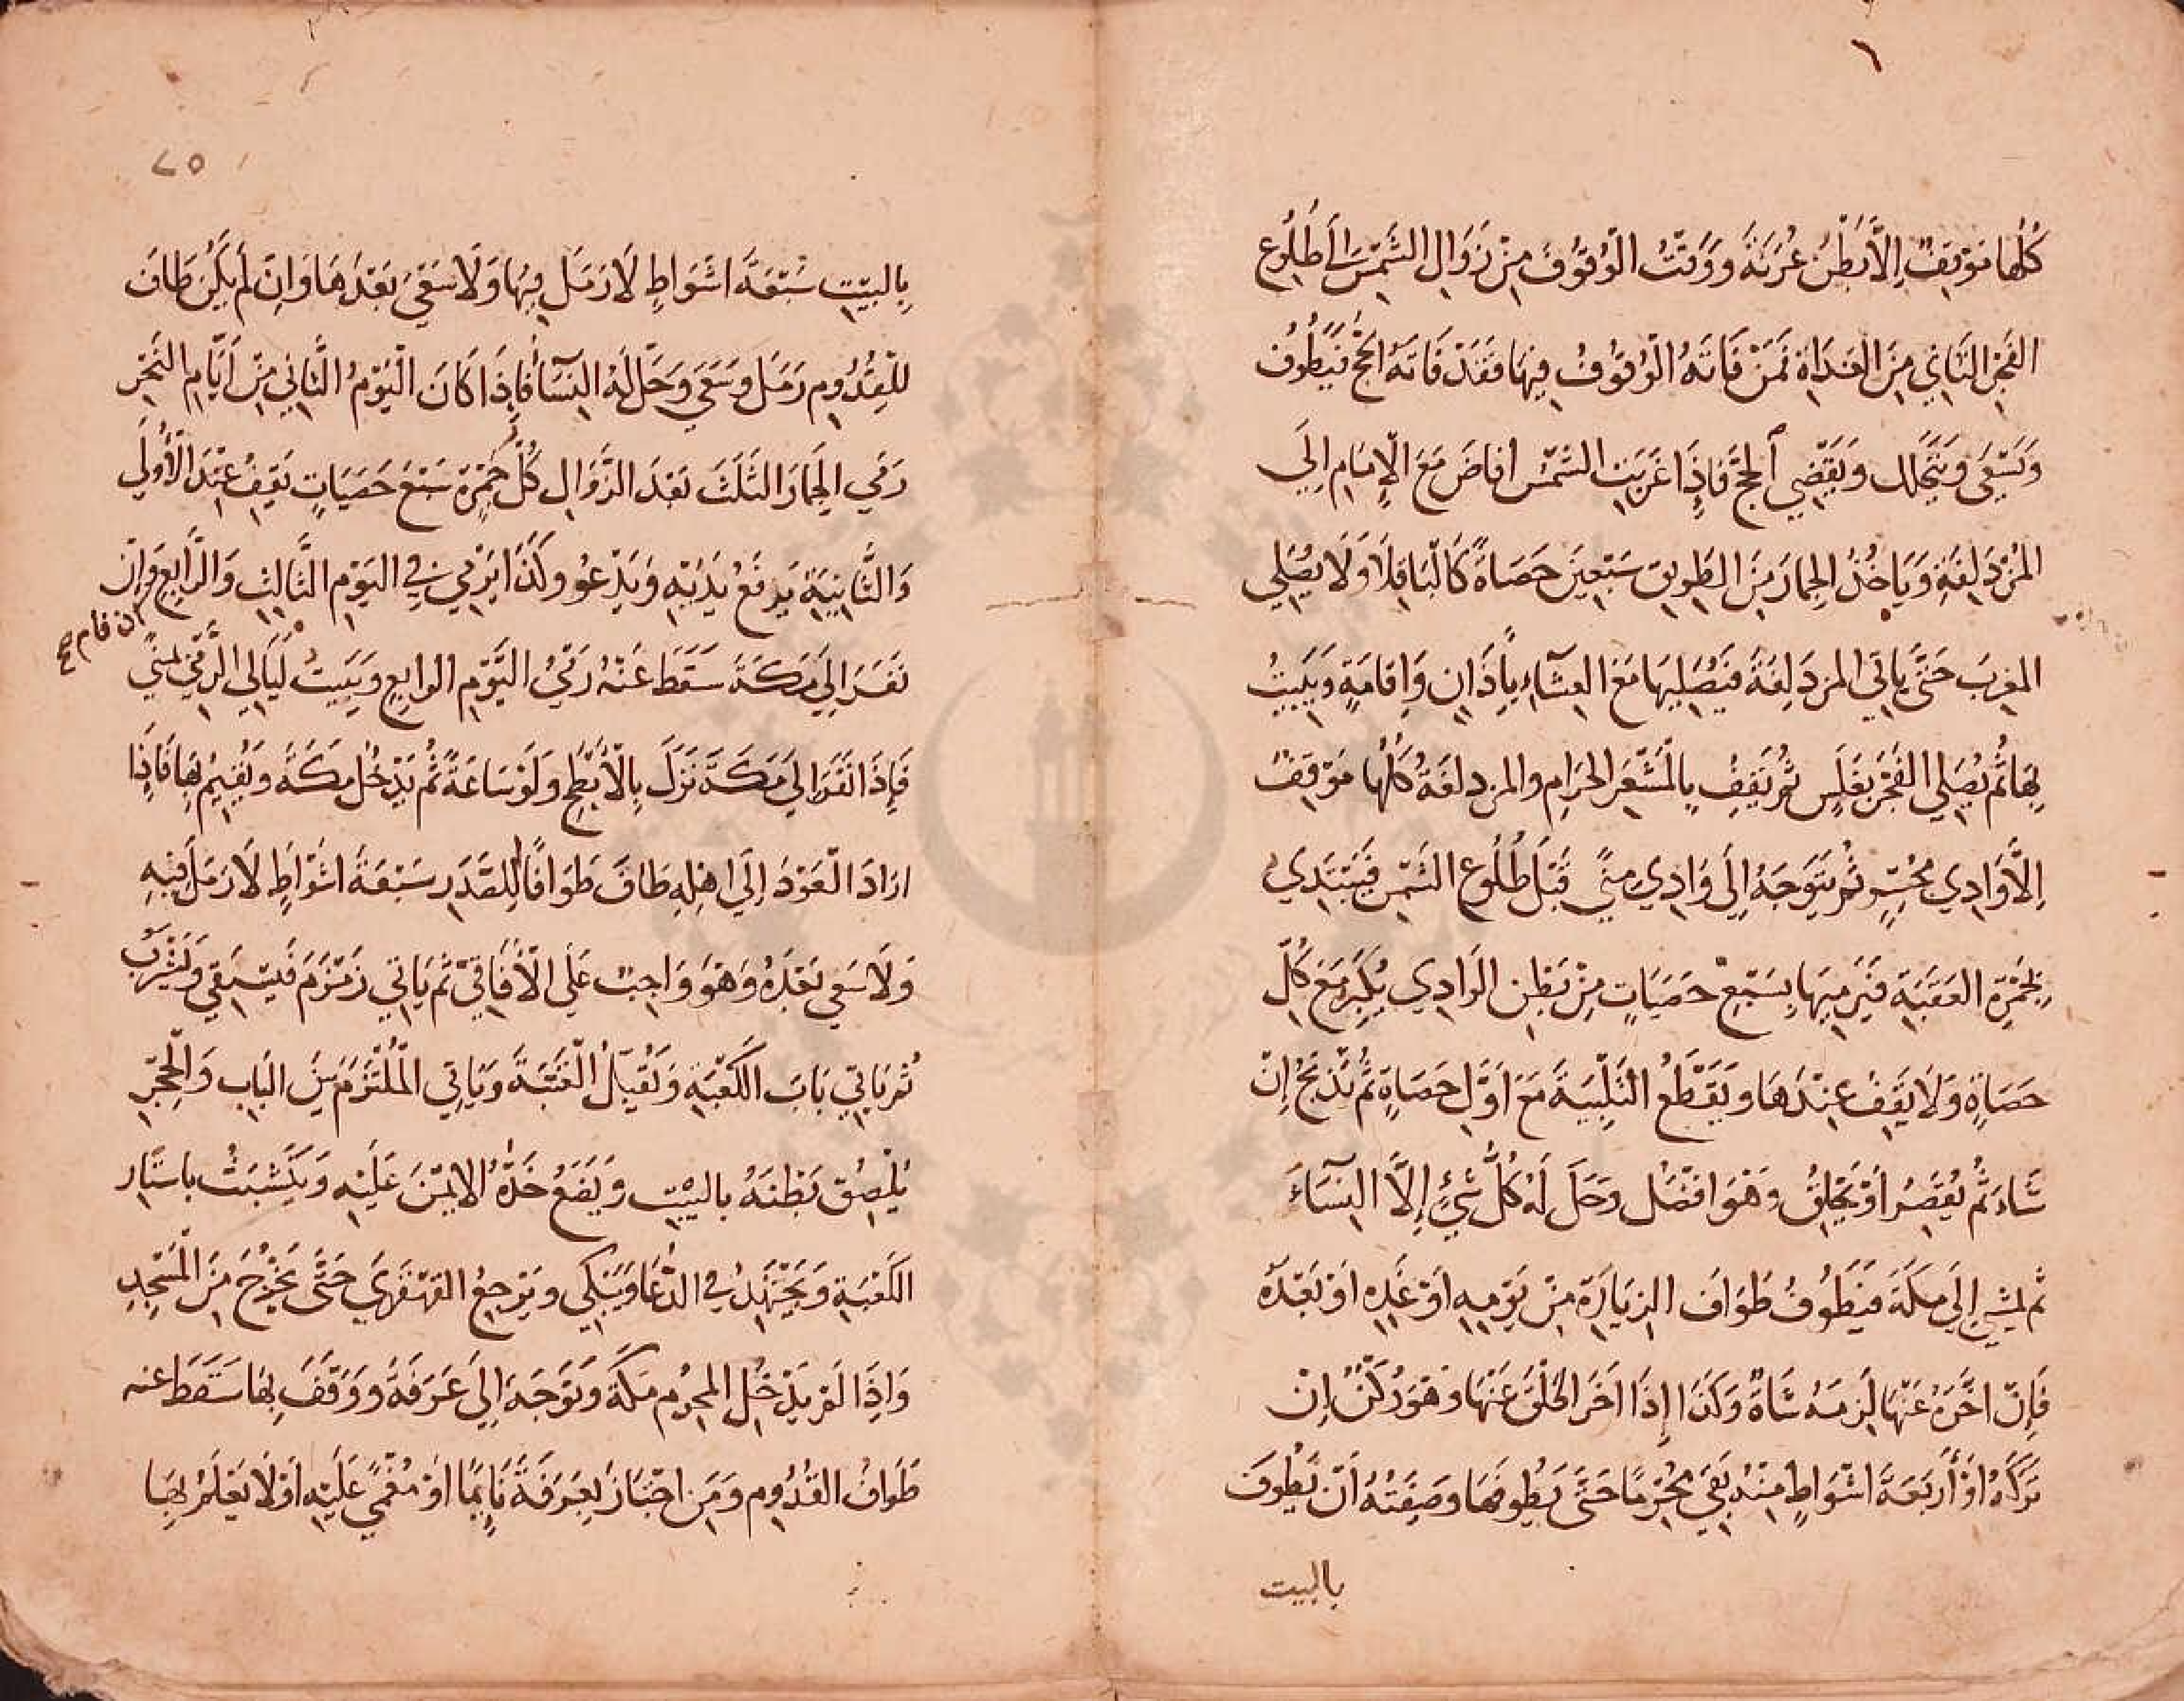 كُلُّها مَوْقِفٌ إِلَّا بَطْنُ عُرَنَةَ وَوَقْتُ الْوُقُوفِ مِنْ زَوَالِ الشَّمْسِ إلى طُلُوعِ
الفَجْرِ الثَّانِي مِنَ الغَدَاةِ فَمَنْ فَاتَهُ الْوُقُوفُ فِيهَا فَقَدْ فَاتَهُ الحَجُّ فَيَطُوفُ
وَيَسْعَى وَيَتَحَلَّلُ وَيَقْضِي الحَجَّ فَإِذَا غَرَبَتِ الشَّمْسُ افاضَ مَعَ الْإِمَامِ إِلَى
المُزْدَلِفَةِ وَيَاخُذُ الجِمَارَ مِنَ الطَّرِيقِ سَبْعِينَ حَصَاةً كَالْبَاقِلَّا وَلَا يُصَلِّي
المَغرِبَ حَتَّى يَاتِيَ المزدَلِفَةَ فَيُصَلِّيهَا مَعَ العِشَاءِ بِأَذَانٍ وَإِقَامَةٍ وَيَبِيتُ
بِهَا ثُمَّ يُصَلِّي الفَجْرَ بِغَلَسٍ ثُمَّ يَقِفُ بِالْمَشْعَرِ الحَرَامِ والمزدلفَةُ كُلُّها مَوْقِفٌ
إِلَّا وَادِي مُحَسِّرٍ ثُمَّ يَتَوَجَّهُ إِلَى وَادِي مِنًى قَبْلَ طُلُوعِ الشَّمْسِ فَيَبْتَدِي
بِجَمْرَةِ العَقَبَةِ فَيَرْمِيهَا بِسَبْعِ حَصَيَاتٍ مِنْ بَطْنِ الوَادِي يُكَبِّرُ مَعَ كُلِّ
حَصَاةٍ وَلَا يَقِفُ عِنْدَهَا وَيَقْطَعُ التَّلْبِيَةَ مَعَ أَوَّلِ حَصَاةٍ ثُمَّ يَذْبَحُ إِنْ
شَاءَ ثُمَّ يُقَصِّرُ أَوْ يَحْلِقُ وَهُوَ افْضَلُ وَحَلَّ لَهُ كُلُّ شَيْءٍ إِلَّا النِّسَاءَ
ثم يمشي إِلَى مَكَّةَ فَيَطُوفُ طَوَافَ الزِّيَارَةِ مِنْ يَوْمِهِ اوْ غَدِهِ اوْ بَعْدَهُ
فَإِنْ اخَّرَهُ عَنْهَا لَزِمَهُ شَاةٌ وَكَذَا إِذَا اخَّرَ الحَلْقَ عَنْهَا وَهُوَ رُكْنٌ إِنْ
تَرَكَهُ اوْ أَرْبَعَةَ اشْوَاطٍ مِنْهُ بَقِيَ مُحْرِمًا حَتَّى يَطُوفَهَا وَصِفَتُهُ أَنْ يَطُوفَ
بالبيت
٧٥
بِالبَيْتِ سَبْعَةَ اشْوَاطٍ لَا رَمَلَ فِيهَا وَلَا سَعْيَ بَعْدَهَا وَإِنْ لَمْ يَكُنْ طَافَ
لِلْقُدُومِ رَمَلَ وَسَعَى وَحَلَّ لَهُ النِّسَآءُ فَإِذَا كَانَ الْيَوْمُ الثَّانِي مِنْ أَيَّامِ النَّحْرِ
رَمَى الْجِمَارَ الثَّلَثَ بَعْدَ الزَّوَالِ كُلَّ جَمْرَةٍ سَبْعَ حَصَيَاتٍ يَقِفُ عِنْدَ الْأُولَى
وَالثَّانِيَةِ يَرْفَعُ يَدَيْهِ وَيَدْعُو وَكَذَا يَرْمِي فِي اليَوْمِ الثَّالِثِ وَالرَّابِعِ وَإِنْ
ان قام صح
نَفَرَ إِلَى مَكَّةَ سَقَطَ عَنْهُ رَمْيُ اليَوْمِ الرابِعِ وَيَبِيتُ لَيَالِيَ الرَّمْيِ بِمِنًى
فَإِذَا نَفَرَ إِلَى مَكَّةَ نَزَلَ بِالْأَبْطَحِ وَلَوْ سَاعَةً ثُمَّ يَدْخُلُ مَكَّةَ وَيُقِيمُ بِهَا فَإِذَا
ارَادَ الْعَوْدَ إِلَى اهْلِهِ طَافَ طَوَافًا لِلصَّدَرِ سَبْعَةَ اشْوَاطٍ لَا رَمَلَ فِيْهِ
وَلَا سَعْيَ بَعْدَهُ وَهُوَ وَاجِبٌ عَلَى الْأُفَاقِيِّ ثُمَّ يَاتِي زَمْزَمَ فَيَسْتَقِي وَيَشْرَبُ
ثُمَّ يَاتِي بَابَ الكَعْبَةِ وَيُقَبِّلُ الْعَتَبَةَ وَيَاتِي الْمُلْتَزَمَ بَيْنَ البَابِ وَالْحَجَرِ
يُلْصِقُ بَطْنَهُ بِالبَيْتِ وَيَضَعُ خَدَّهُ الايْمَنَ عَلَيْهِ وَيَتَشَبَّثُ باسْتَارِ
الكَعْبَةِ وَيَجْتَهِدُ فِي الدُّعَا وَيَبْكِي وَيَرْجِعُ القَهْقَرَى حَتَّى يَخْرُجَ مِنَ الْمَسْجِدِ
وَإِذَا لَمْ يَدْخُلِ المحرِمُ مَكَّةَ وَتَوَجَّهَ إِلَى عَرَفَةَ وَوَقَفَ بِهَا سَقَطَ عنه
طَوَافُ القُدُومِ وَمَنِ اجْتَازَ بِعَرَفَةَ نَايِمًا اوْ مُغْمًى عَلَيْهِ أَوْ لَا يَعْلَمُ بِهَا